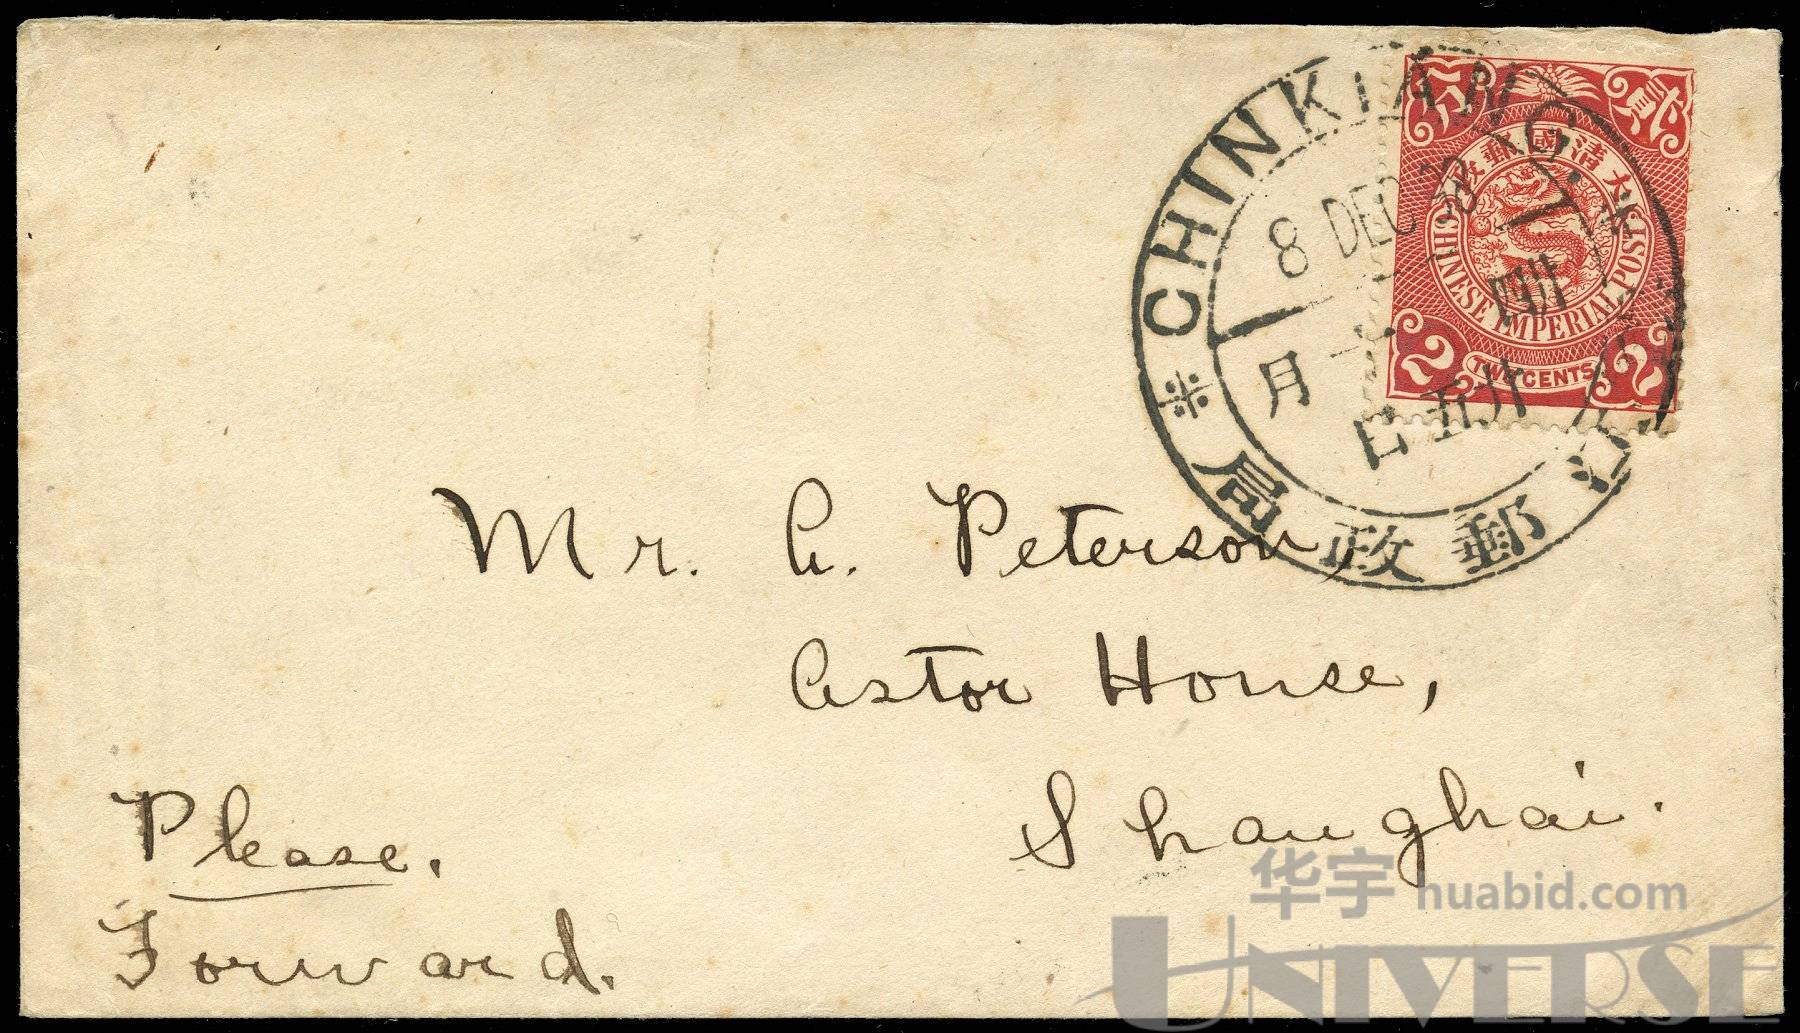 CHINKIANG
8 DEC
月
日
郵政局
貳分
大清國郵政
CHINESE IMPERIAL POST
2 2
TWO CENTS
Mr. A. Peterson,
Astor House,
Shanghai.
Please.
Forward.
华宇 huabid.com
UNIVERSE